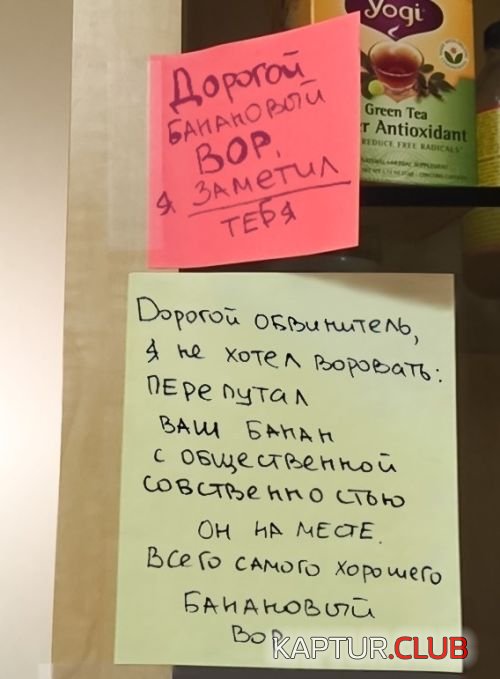 yogi
Green Tea
r Antioxidant
REDUCE FREE RADICALS
Дорогой
БАНАНОВЫЙ
ВОР,
Я ЗАМЕТИЛ
ТЕБЯ
Дорогой обвинитель,
я не хотел воровать:
ПЕРЕПУТАЛ
ВАШ БАНАН
С ОБЩЕСТВЕННОЙ
СОБСТВЕННОСТЬЮ
ОН НА МЕСТЕ.
ВСЕГО САМОГО ХОРОШЕГО
БАНАНОВЫЙ
ВОР
KAPTUR.CLUB